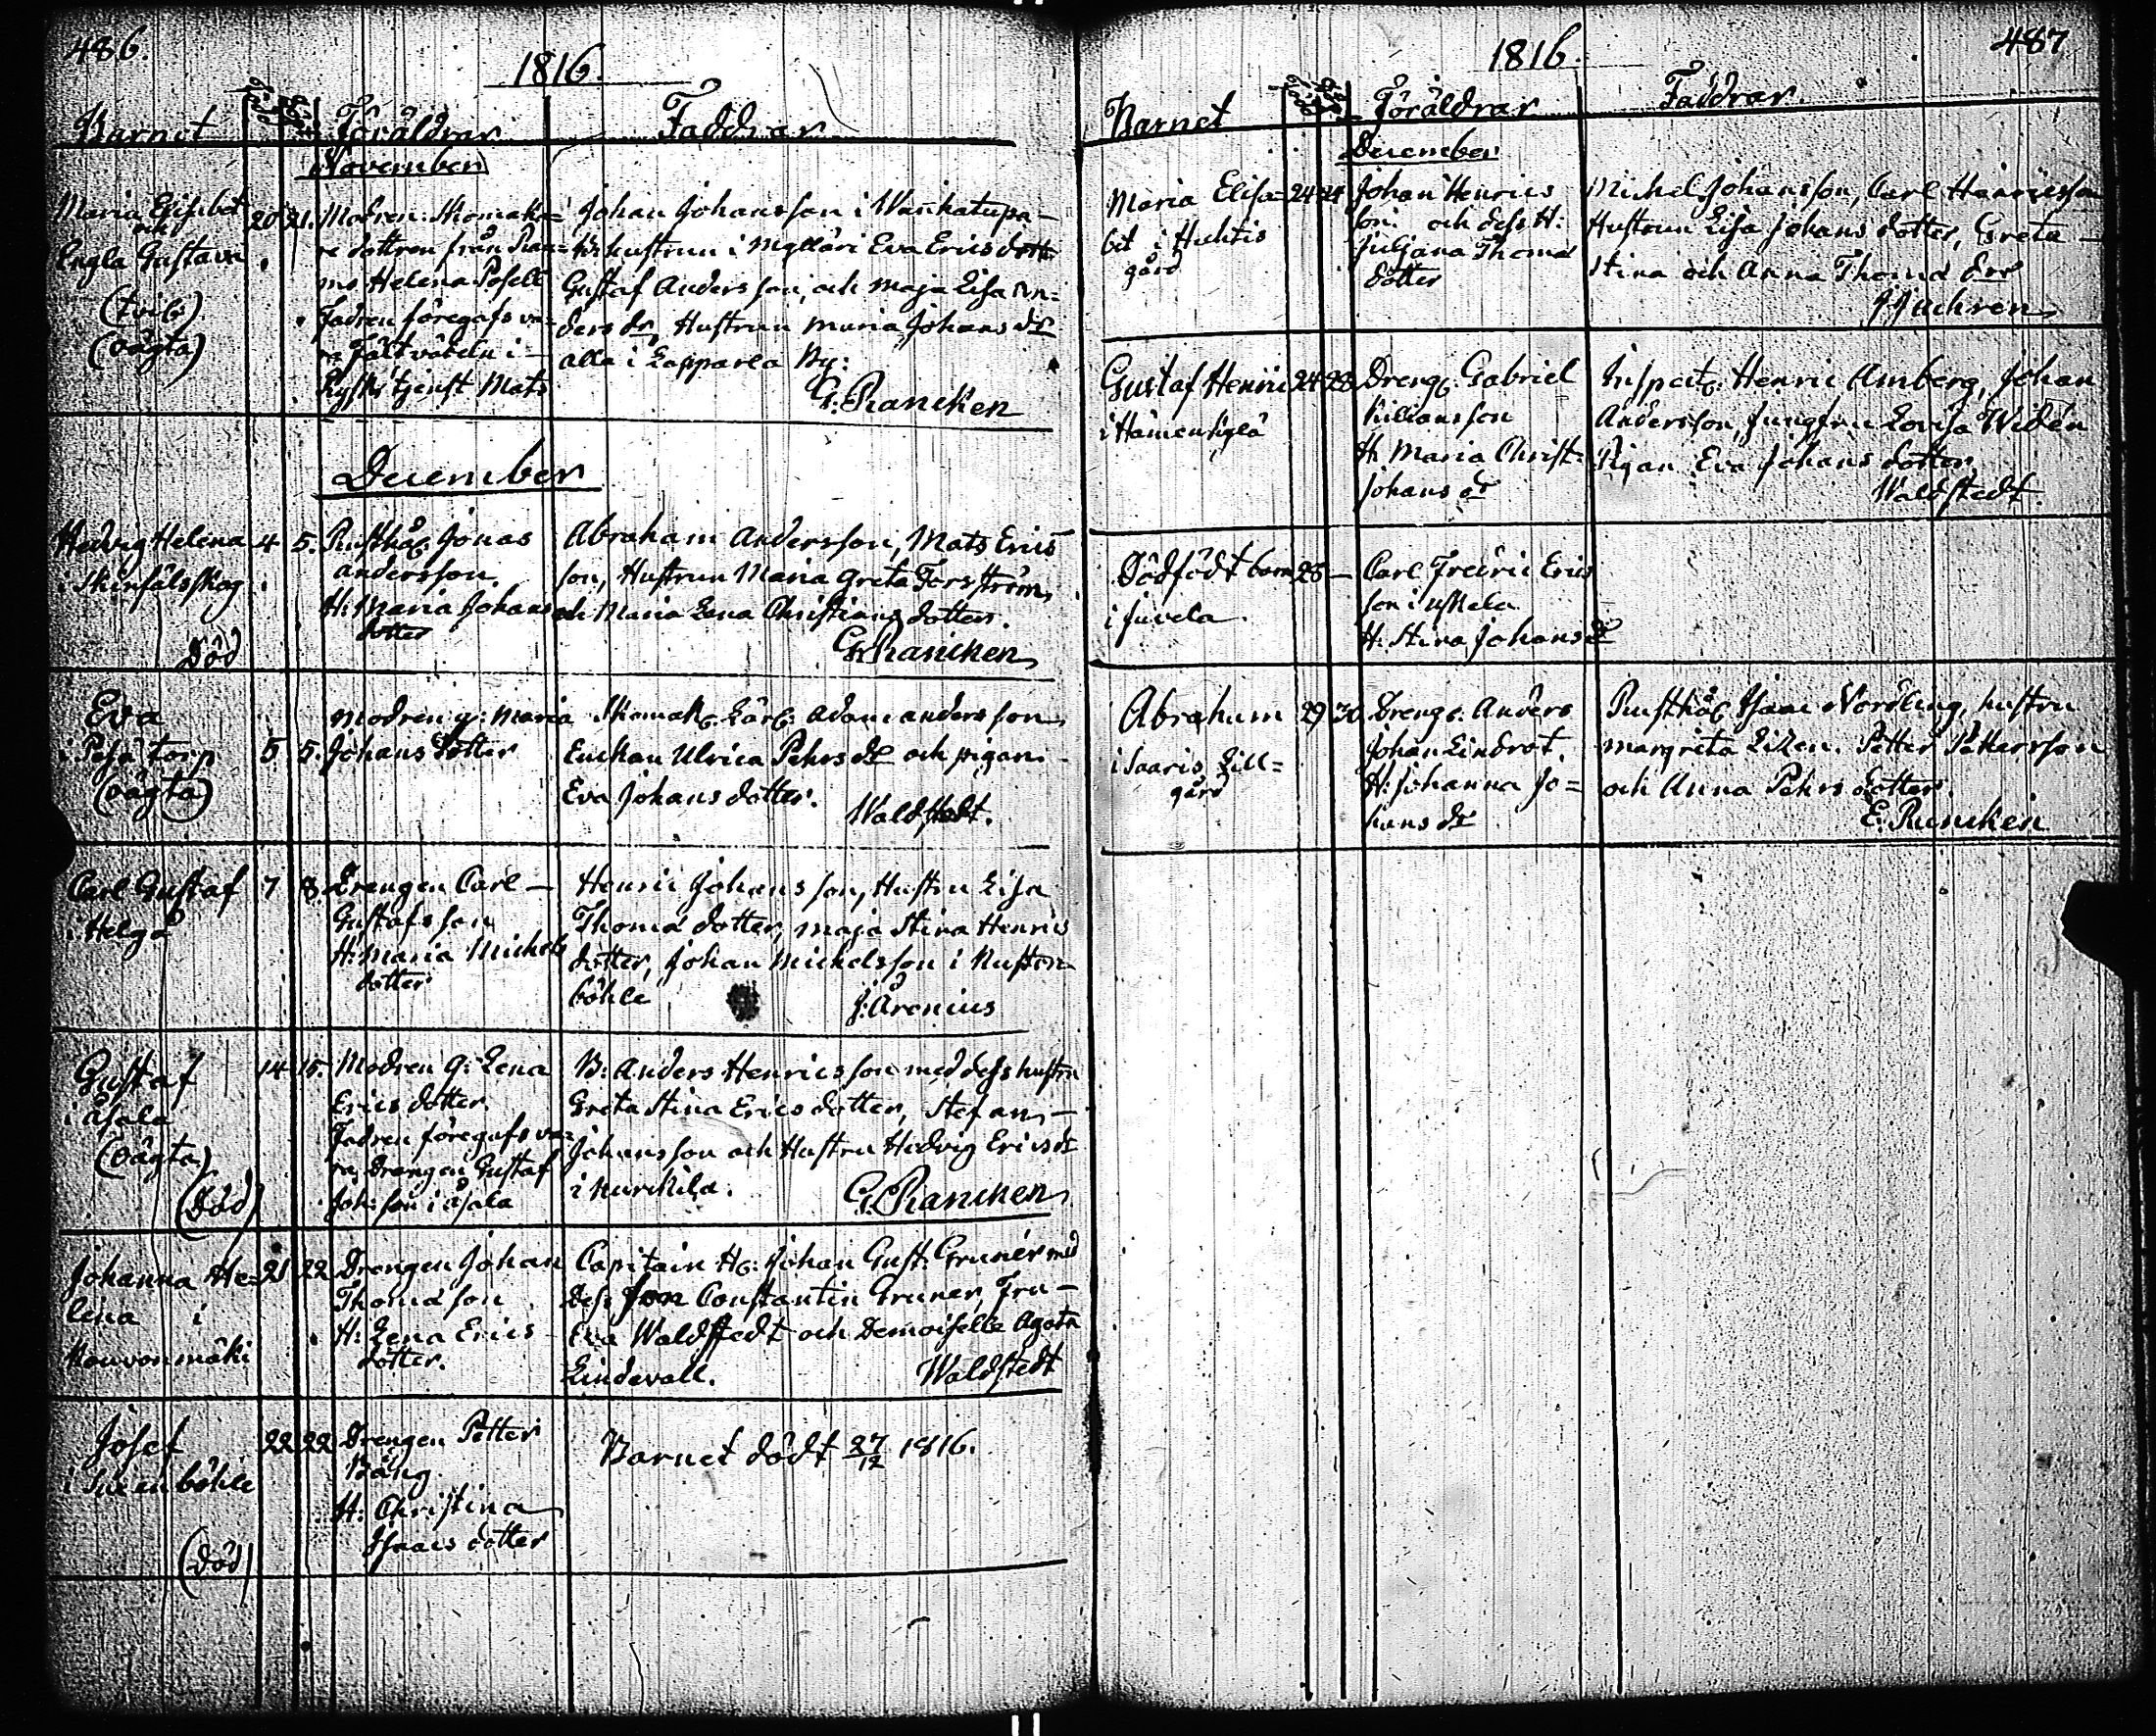 486.
1816.
Barnet
Föd.
Föräldrar
Faddrar
November
Maria Elisabet
och
Engla Gustava
(tvil:)
(oägta)
20 21. Modren: Skomaka=
re dottren från
Helena
Fadren föregafs va=
ra Fältväbeln i
Rysk tjenst Mats
Johan Johansson i
hustrun i Mylläri Eva Ericsdotter
Gustaf Andersson, och Maja Lisa An=
ders dr, Hustrun Maria Johans dr
alla i Lapparla By:
G. Rancken
December
Hedvig Helena
i Skinfälsskog
Död
4 5. Rusthål. Jonas
Andersson.
H: Maria Johans
dotter
Abraham Andersson, Mats Erics
son, Hustrun Maria Greta Forsström,
och Maria Lena Christians dotter.
G. Rancken
Eva
i torp
(oägta)
5 5. Modren q: Maria
Johans dotter
Skomak. Lärl: Adam Andersson
Enckan Ulrica Pehrs dr och pigan
Eva Johans dotter.
Waldstedt.
Carl Gustaf
i Helgå
7 8. Drengen Carl
Gustafsson
H: Maria Michels
dotter
Henric Johansson, Hustru Lisa
Thomæ dotter, Maja Stina Henrics
dotter, Johan Michelsson i
böhle
J: Arenius
Gustaf
i Åsala
(oägta)
(Död)
14 15. Modren q: Lena
Erics dotter.
Fadren föregafs va=
ra Drengen Gustaf
Joh: son i Åsala
B: Anders Henricsson med dess hustru
Greta Stina Ericsdotter, Stefan
Johansson och Hustru Hedvig Erics dr
i Kurkila.
G. Rancken
Johanna He=
lena i
Kouvonmäki
21 22 Drengen Johan
Thomæ son
H: Lena Erics
dotter.
Capitain H: Johan Gust. Gruner med
dess son Constantin Gruner, Fru
Eva Waldstedt och Demoiselle Agata
Lindevall.
Waldstedt
Josef
i böhle
(Död)
22 22 Drengen Petter
Bång
H: Christina
Isaacs dotter
Barnet dödt 27/12 1816.
487
1816.
Barnet
Föd.
Föräldrar
Faddrar
December
Maria Elisa=
bet i Huhtis
gård
24 24 Johan Henrics
son: och dess H:
Juliana Thomæ
dotter
Michel Johansson, Carl Henricsson
Hustrun Lisa Johans dotter, Greta
Stina och Anna Thomæ drr
Gustaf Henric
i Hämenkylä
24 28 Dreng. Gabriel
Kiliansson
H: Maria Christ:
Johans dr
Inspect. Henric Amberg, Johan
Andersson, Jungfru Lovisa Widén
Pigan Eva Johans dotter
Waldstedt
Dödfödt barn
i Juvela.
28 – Carl Fredric Erics
son i
H: Stina Johans dr
Abraham
i Saaris Lill=
gård
29 30 Dreng. Anders
Johan Lindrot.
H: Johanna Jo=
hans dr
Rusthål. Isaac Nordling, hustru
Margreta Liken. Petter Pettersson
och Anna Pehrs dotter.
E. Rancken